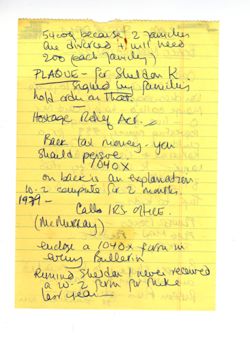 5400s because 2 families
are divorced & will need
200 (each family)
PLAQUE - for Sheldon K.
signed by families
hold order as that
Hostage Relief Act.
Back tax money - you
should persue.
1040X
on back is an explanation.
10-2 compute for 2 months.
1979 -
Calls IRS office.
(McMurray)
enclose a 1040x form in
every Bulletin
Remind Sheldon I never received
a W-2 form for Mike
last year -